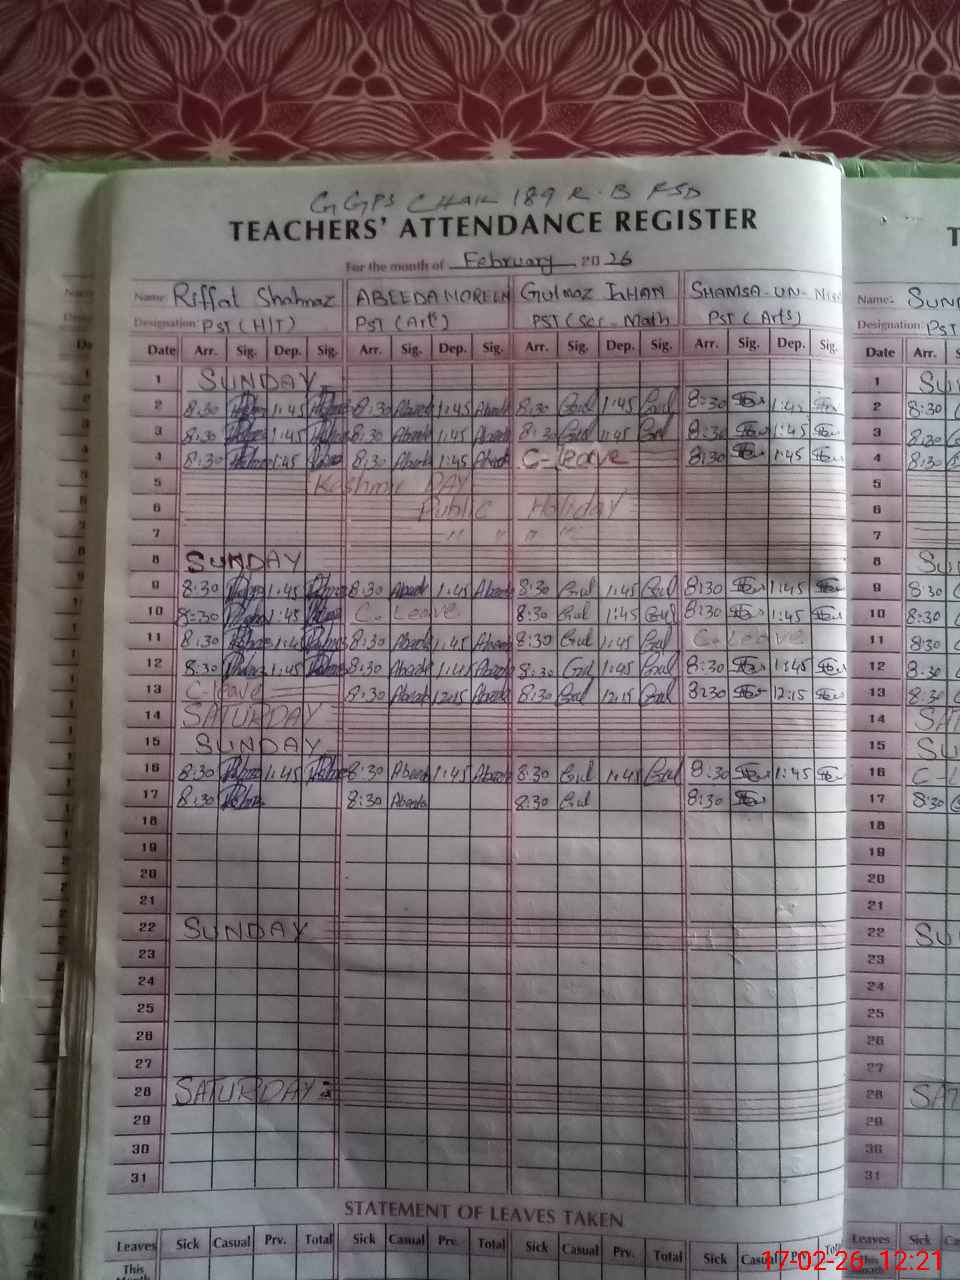 GGPS CHAK 189 R.B FSD
TEACHERS' ATTENDANCE REGISTER
For the month of February 20 26
Name: Riffat Shahnaz ABEEDA NOREEN Gulnaz KHAN SHAMSA-UN-
Designation: PST (H/T) PST (Arts) PST (Sci-Math PST (Arts)
Date Arr. Sig. Dep. Sig. Arr. Sig. Dep. Sig. Arr. Sig. Dep. Sig. Arr. Sig. Dep. Sig.
1 SUNDAY
2 8:30 1:45 8:30 Abeeda 1:45 Abeeda 8:30 Gul 1:45 Gul 8:30 1:45
3 8:30 1:45 8:30 Abeeda 1:45 Abeeda 8:30 Gul 1:45 Gul 8:30 1:45
4 8:30 1:45 8:30 Abeeda 1:45 Abeeda C-leave 8:30 1:45
5 Kashmir DAY
6 Public Holiday
7 " " " "
8 SUNDAY
9 8:30 1:45 8:30 Abeeda 1:45 Abeeda 8:30 Gul 1:45 Gul 8:30 1:45
10 8:30 1:45 C. Leave 8:30 Gul 1:45 Gul 8:30 1:45
11 8:30 1:45 8:30 Abeeda 1:45 Abeeda 8:30 Gul 1:45 Gul C. Leave
12 8:30 1:45 8:30 Abeeda 1:45 Abeeda 8:30 Gul 1:45 Gul 8:30 1:45
13 C-leave 8:30 Abeeda 12:15 Abeeda 8:30 Gul 12:15 Gul 8:30 12:15
14 SATURDAY
15 SUNDAY
16 8:30 1:45 8:30 Abeeda 1:45 Abeeda 8:30 Gul 1:45 Gul 8:30 1:45
17 8:30 8:30 Abeeda 8:30 Gul 8:30
18
19
20
21
22 SUNDAY
23
24
25
26
27
28 SATURDAY
29
30
31
STATEMENT OF LEAVES TAKEN
Leaves Sick Casual Prv. Total Sick Casual Prv. Total Sick Casual Prv. Total Sick Casual Prv. Total
This
Month
Name: SUN
Designation: PST
Date Arr. S
1 SUN
2 8:30
3 8:30
4 8:30
5
6
7
8 SU
9 8:30
10 8:30
11 8:30
12 8:30
13 8:30
14 SA
15 SU
16 C-L
17 8:30
18
19
20
21
22 SU
23
24
25
26
27
28 SAT
29
30
31
Leaves Sick Ca
17-02-26 12:21